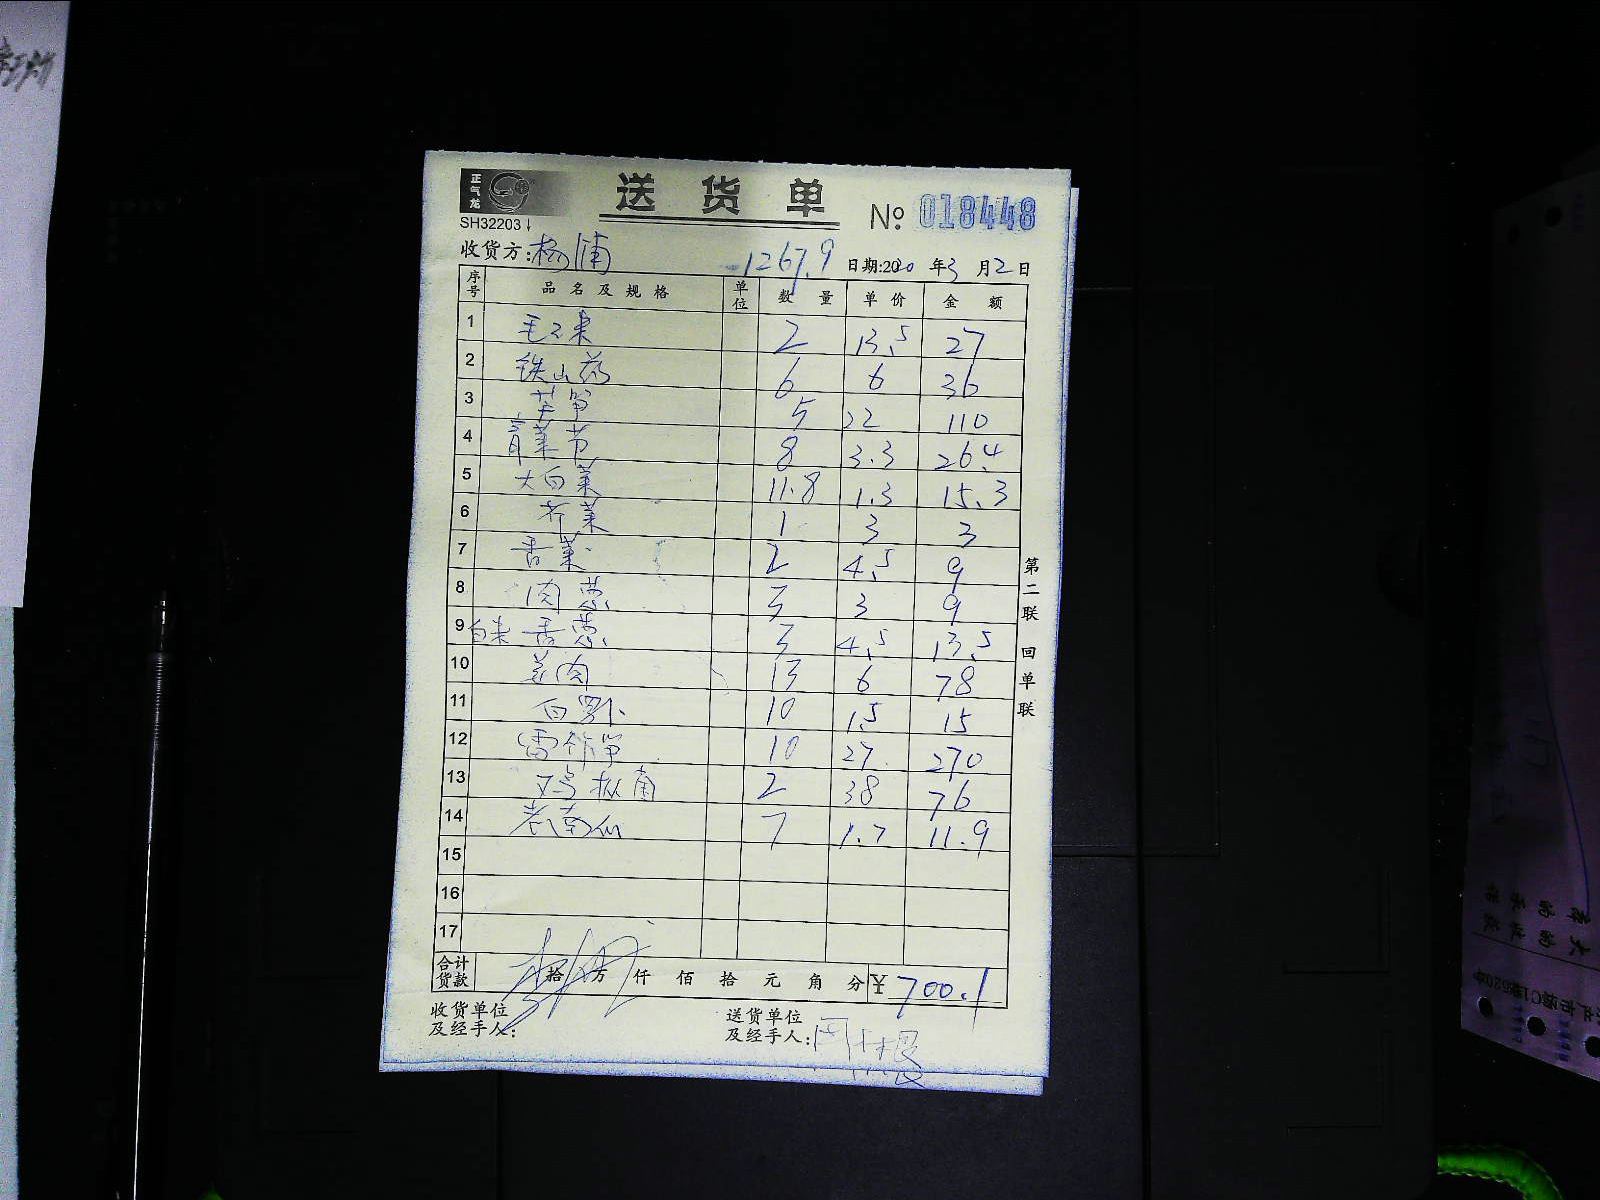 正气龙
送货单
№ 018448
SH32203
收货方:杨浦 1267.9 日期:2020年3月2日
序号 品名及规格 单位 数量 单价 金额
1 毛豆米 2 13.5 27
2 铁山药 6 6 36
3 芦笋 5 22 110
4 青菜苔 8 3.3 26.4
5 大白菜 11.8 1.3 15.3
6 芹菜 1 3 3
7 香菜 2 4.5 9
8 肉葱 3 3 9
9 白米香葱 3 4.5 13.5
10 姜肉 13 6 78
11 白萝卜 10 1.5 15
12 雷竹笋 10 27 270
13 鸡枞菌 2 38 76
14 老南瓜 7 1.7 11.9
15
16
17
合计货款 拾 万 仟 佰 拾 元 角 分 ¥ 700.1
收货单位及经手人:
送货单位及经手人:
第二联 回单联